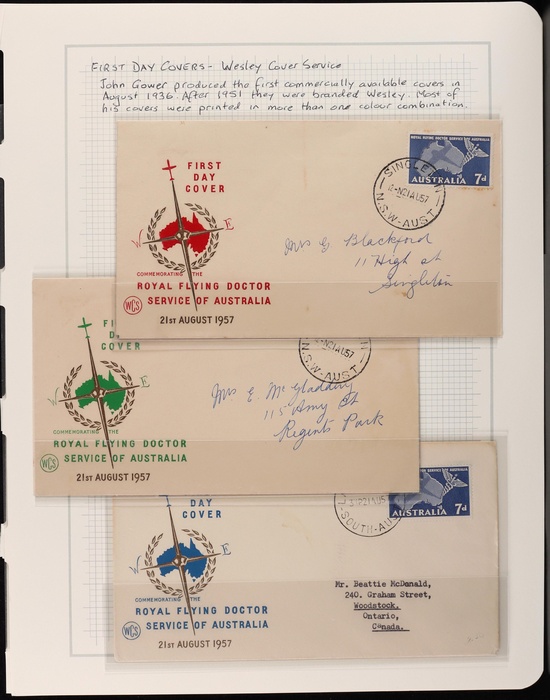 FIRST DAY COVERS - Wesley Cover Service
John Gower produced the first commercially available covers in
August 1936. After 1951 they were branded Wesley. Most of
his covers were printed in more than one colour combination.
FIRST
DAY
COVER
W E
COMMEMORATING THE
ROYAL FLYING DOCTOR
WCS SERVICE OF AUSTRALIA
21ST AUGUST 1957
ROYAL FLYING DOCTOR SERVICE OF AUSTRALIA
AUSTRALIA 7d
N.S.W-AUST.
Mrs G Blackford
11 High St
Singleton
COVER
W E
COMMEMORATING THE
ROYAL FLYING DOCTOR
WCS SERVICE OF AUSTRALIA
21ST AUGUST 1957
N.S.W-AUST.
Mrs E. McGladdery
115 Amy St
Regents Park
DAY
COVER
W E
COMMEMORATING THE
ROYAL FLYING DOCTOR
WCS SERVICE OF AUSTRALIA
21ST AUGUST 1957
DOCTOR SERVICE OF AUSTRALIA
AUSTRALIA 7d
Mr. Beattie McDonald,
240. Graham Street,
Woodstock.
Ontario,
Canada.